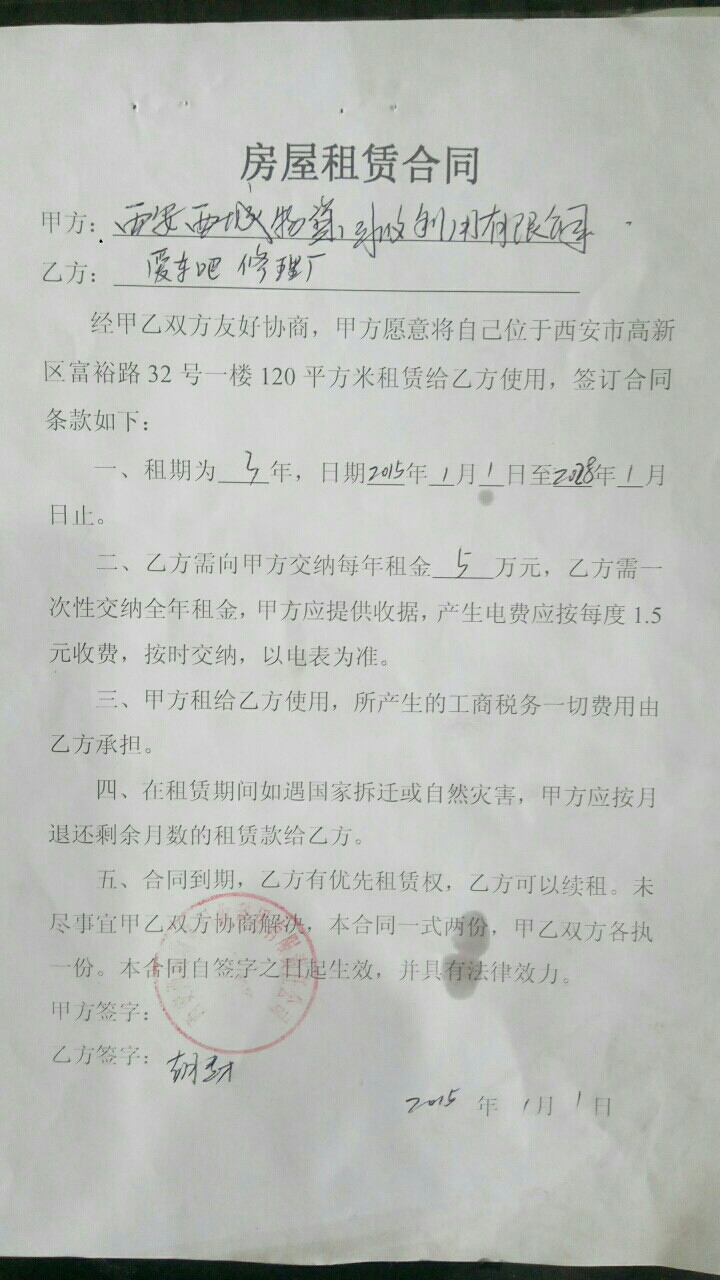 房屋租赁合同
甲方：西安西城物资回收利用有限公司
乙方：爱车吧修理厂
经甲乙双方友好协商，甲方愿意将自己位于西安市高新
区富裕路 32 号一楼 120 平方米租赁给乙方使用，签订合同
条款如下：
一、租期为 3 年，日期 2015 年 1 月 1 日至 2018 年 1 月
日止。
二、乙方需向甲方交纳每年租金 5 万元，乙方需一
次性交纳全年租金，甲方应提供收据，产生电费应按每度 1.5
元收费，按时交纳，以电表为准。
三、甲方租给乙方使用，所产生的工商税务一切费用由
乙方承担。
四、在租赁期间如遇国家拆迁或自然灾害，甲方应按月
退还剩余月数的租赁款给乙方。
五、合同到期，乙方有优先租赁权，乙方可以续租。未
尽事宜甲乙双方协商解决，本合同一式两份，甲乙双方各执
一份。本合同自签字之日起生效，并具有法律效力。
甲方签字：
乙方签字：
2015 年 1 月 1 日